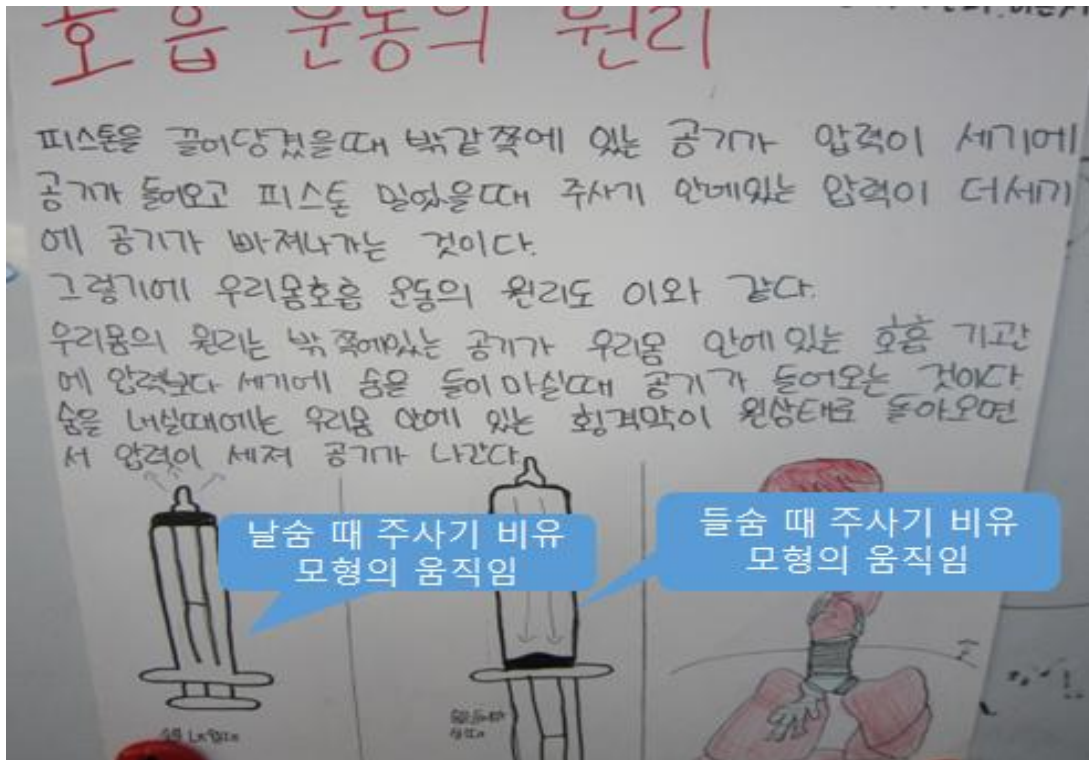 호흡 운동의 원리
피스톤을 끌어당겼을때 밖같쪽에 있는 공기가 압력이 세기에
공기가 들어오고 피스톤 밀었을때 주사기 안에있는 압력이 더세기
에 공기가 빠져나가는 것이다.
그렇기에 우리몸호흡 운동의 원리도 이와 같다.
우리몸의 원리는 밖쪽에있는 공기가 우리몸 안에있는 호흡 기관
에 압력보다 세기에 숨을 들이마실때 공기가 들어오는 것이다
숨을 내실때에는 우리몸 안에 있는 횡겨막이 원상태로 돌아오면
서 압력이 세져 공기가 나간다.
날숨 때 주사기 비유
모형의 움직임
들숨 때 주사기 비유
모형의 움직임